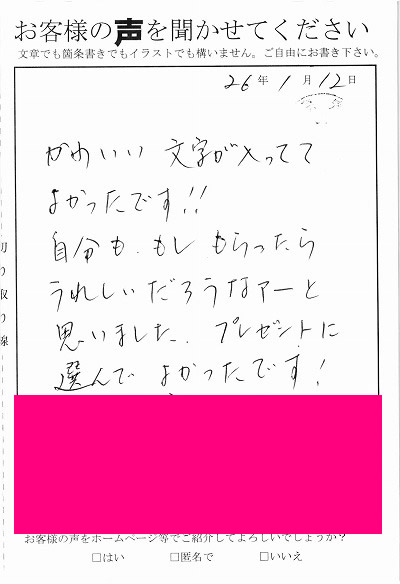 お客様の声を聞かせてください
文章でも箇条書きでもイラストでも構いません。ご自由にお書き下さい。
26年1月12日
かわいい文字が入ってて
よかったです!!
自分も、もしもらったら
うれしいだろうなァーと
思いました。プレゼントに
選んでよかったです!
切り取り線
お客様の声をホームページ等でご紹介してよろしいでしょうか?
□はい □匿名で □いいえ